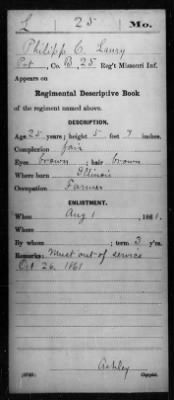 L 25 Mo.
Philipp C. Laury
Pvt, Co. B, 25 Reg't Missouri Inf.
Appears on
Regimental Descriptive Book
of the regiment named above.
DESCRIPTION.
Age 25 years; height 5 feet 7 inches.
Complexion fair
Eyes brown; hair brown
Where born Illinois
Occupation Farmer
ENLISTMENT.
When Aug 1, 1861.
Where
By whom ; term 3 y'rs.
Remarks: Must out of service
Oct 26. 1861
Ashley
Copyist.